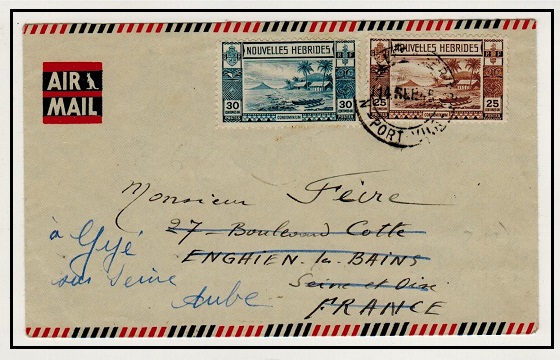 NOUVELLES HEBRIDES
RF
30
30
CONDOMINIUM
NOUVELLES HEBRIDES
RF
25
25
CONDOMINIUM
PORT VILA
AIR
MAIL
Monsieur Féire
27 - Boulevard Cotte
ENGHIEN-les-BAINS
Seine et Oise
FRANCE
à Gyé
sur Seine
Aube